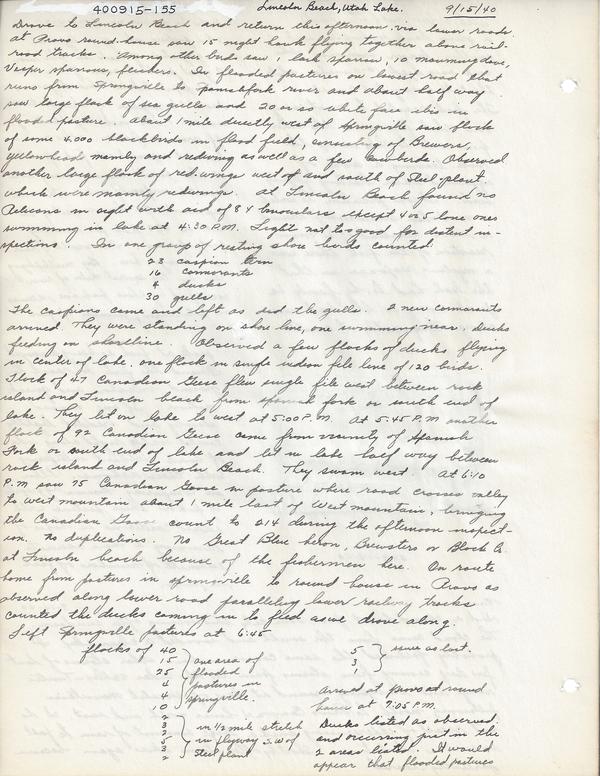 400915-155
Lincoln Beach, Utah Lake.
9/15/40
Drove to Lincoln Beach and return this afternoon via lower roads.
at Provo round-house saw 15 night hawk flying together above rail-
road tracks. Among other birds saw 1 lark sparrow, 10 mourning dove,
Vesper sparrows, flickers. In flooded pastures on lowest road that
runs from Springville to spanish fork river and about half way
saw large flock of sea gulls and 20 or so white face ibis in
flooded pasture. about 1 mile directly west of Springville saw flock
of some 4,000 blackbirds in flood field, consisting of Brewers,
yellowheads mainly and redwing as well as a few cowbirds. Observed
another large flock of red-wings west of and south of Steel plant.
which were mainly redwings. At Lincoln Beach found no
Pelicans in sight with aid of 8X binoculars except 4 or 5 lone ones
swimming in lake at 4:30 P.M. Light not to good for distent in-
spections. In one group of resting shore birds counted:
23 caspian tern
16 cormorants
4 ducks
30 gulls
The caspions came and left as did the gulls. 2 new cormorants
arrived. They were standing on shore line, one swimming near. Ducks
feeding on shoreline. Observed a few flocks of ducks flying
in center of lake. one flock in single indian file line of 120 birds.
Flock of 47 Canadian Geese flew single file west between rock
island and Lincoln beach from spanish fork or south end of
lake. They let on lake to west at 5:00 P.M. At 5:45 P.M another
flock of 92 Canadian Geese came from vicinity of Spanish
Fork or south end of lake and let in lake half way between
rock island and Lincoln Beach. They swam west. At 6:10
P.M saw 75 Canadian Goose in pasture where road crosses valley
to west mountain about 1 mile east of West mountain, bringing
the Canadian Goose count to 214 during the afternoon inspect-
ion. no duplications. No Great Blue heron, Brewsters or Black C.
at Lincoln beach because of the fishermen here. On route
home from pastures in springville to round house in Provo as
observed along lower road paralleling lower railway tracks
counted the ducks coming in to feed as we drove along.
Left Springville pastures at 6:45
flocks of 40
15
25
4
4
10
one area of
flooded
pastures in
Springville.
2
3
2
5
3
2
in 1/2 mile stretch
in flyway S.W of
Steel plant
5
3
1
same as last.
arrived at provo at round
house at 7:05 P.M.
Ducks listed as observed
and occurring just in the
2 areas listed. It would
appear that flooded pastures